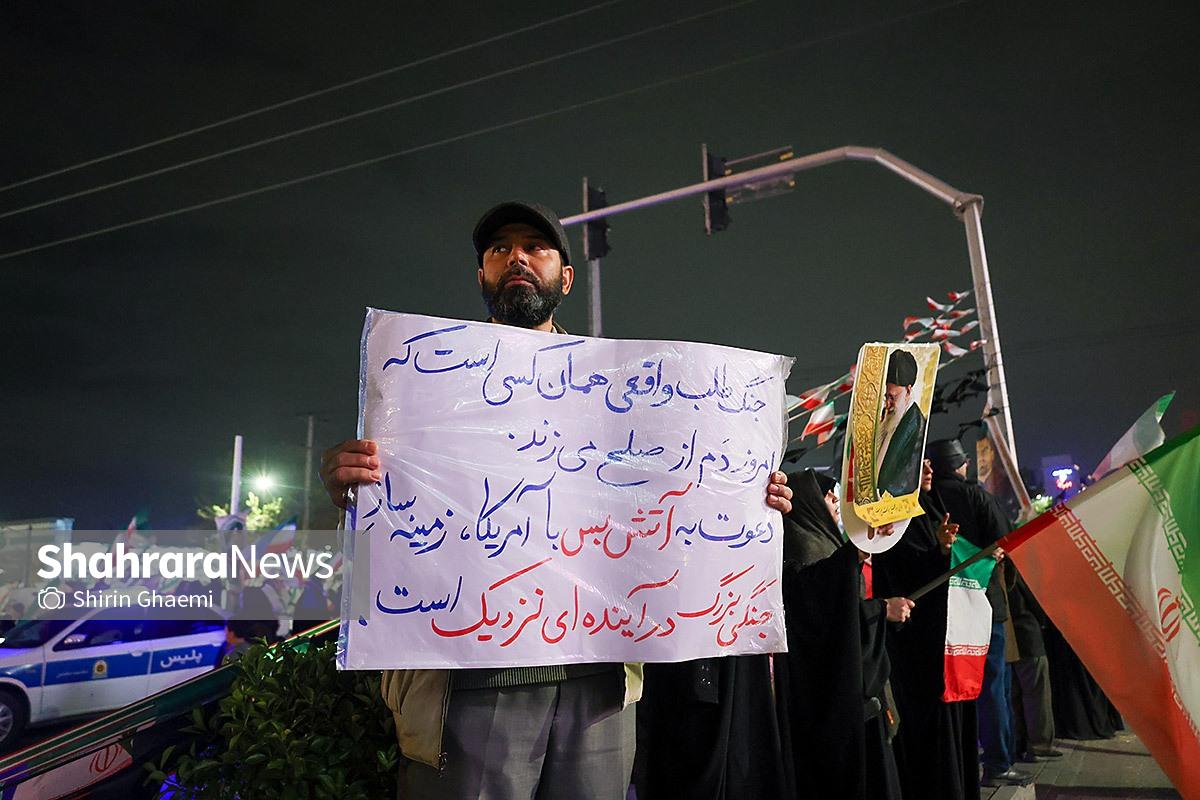 جنگ طلب واقعی همان کسی است که
امروز دَم از صلح می زند.
دعوت به آتش بس با آمریکا، زمینه سازِ
جنگی بزرگ در آینده ای نزدیک است.
ShahraraNews
Shirin Ghaemi
پلیس